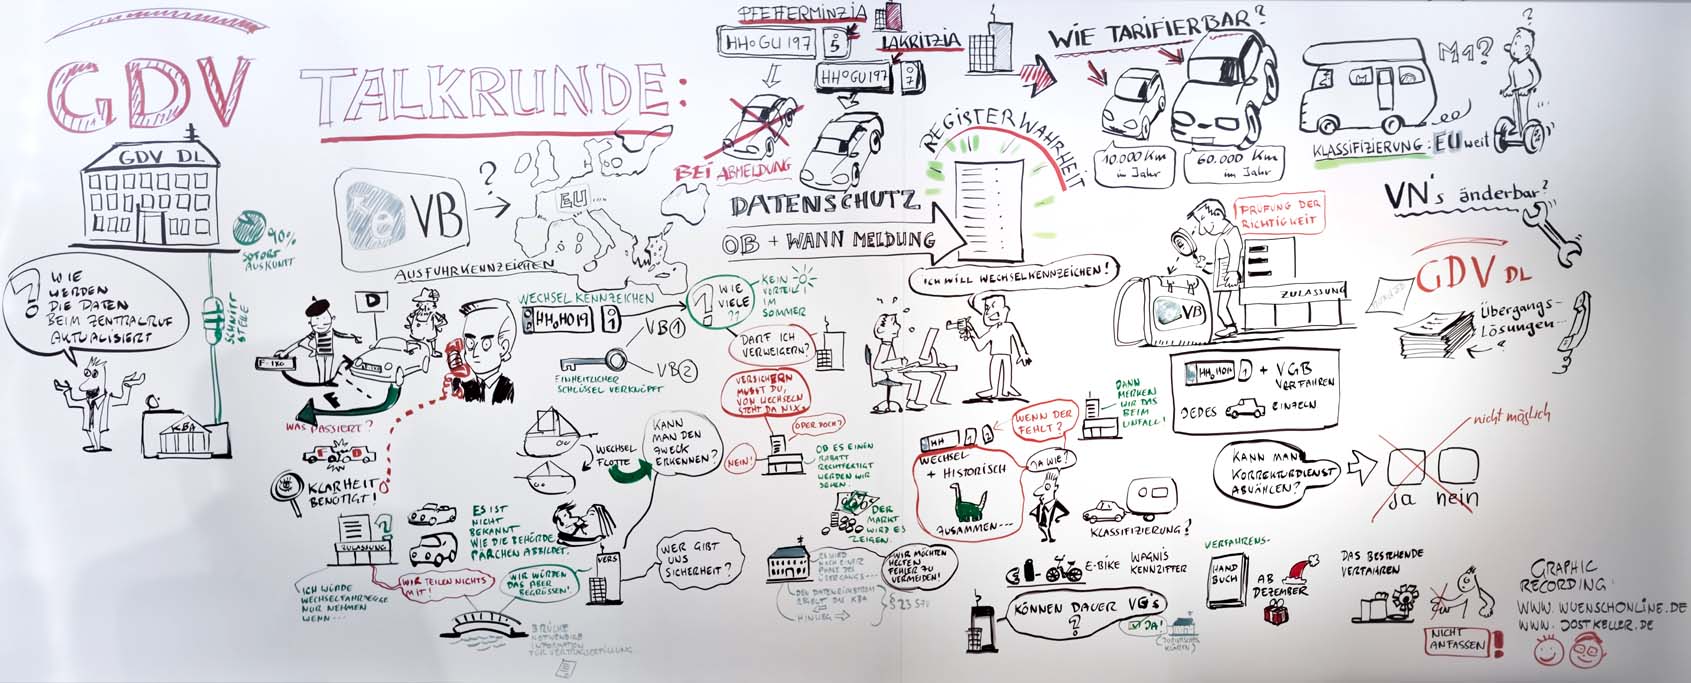 GDV TALKRUNDE:
GDV DL
90%
SOFORT
AUSKUNFT
SCHNITT
STELLE
WIE
WERDEN
DIE DATEN
BEIM ZENTRALRUF
AKTUALISIERT
?
KBA
e VB
?
EU
AUSFUHRKENNZEICHEN
D
F
WAS PASSIERT?
KLARHEIT
BENÖTIGT!
PFEFFERMINZIA
HHoGU197
5
LAKRITZIA
HHoGU197
7
BEI ABMELDUNG
DATENSCHUTZ
OB + WANN MELDUNG
REGISTERWAHRHEIT
WIE TARIFIERBAR?
10.000 Km
im Jahr
60.000 Km
im Jahr
M1?
?
KLASSIFIZIERUNG: EU weit
VN's änderbar?
WECHSELKENNZEICHEN
HHoHO19
1
VB1
VB2
EINHEITLICHER
SCHLÜSSEL VERKNÜPFT
?
WIE
VIELE
??
KEIN
VORTEIL!
IM
SOMMER
DARF ICH
VERWEIGERN?
VERSICHERN
MUSST DU,
VON WECHSELN
STEHT DA NIX.
ODER DOCH?
NEIN!
OB ES EINEN
RABATT
RECHTFERTIGT
WERDEN WIR
SEHEN.
DER
MARKT
WIRD ES
ZEIGEN.
ICH WILL WECHSELKENNZEICHEN!
PRÜFUNG DER
RICHTIGKEIT
VB
ZULASSUNG
GDV DL
Übergangs-
Lösungen...
HHoHO19 1 + VGB
VERFAHREN
JEDES EINZELN
WECHSEL
FLOTTE
KANN
MAN DEN
ZWECK
ERKENNEN?
HH 1 2
WENN DER
FEHLT?
DANN
MERKEN
WIR DAS
BEIM
UNFALL!
WECHSEL
+ HISTORISCH
ZUSAMMEN...
JA WIE?
KLASSIFIZIERUNG?
KANN MAN
KORREKTURDIENST
ABWÄHLEN?
nicht möglich
ja nein
ZULASSUNG
?
ES IST
NICHT
BEKANNT
WIE DIE BEHÖRDE
PÄRCHEN ABBILDET.
ICH WÜRDE
WECHSELFAHRZEUGE
NUR NEHMEN
WENN...
WIR TEILEN NICHTS
MIT!
WIR WÜRDEN
DAS ABER
BEGRÜSSEN!
BRÜCKE
NOTWENDIGE
INFORMATION
FÜR VERTRAGSERFÜLLUNG
VERS
WER GIBT
UNS
SICHERHEIT?
WIR MÖCHTEN
HELFEN
FEHLER ZU
VERMEIDEN!
E-BIKE
WAGNIS
KENNZIFFER
KÖNNEN DAUER VG's
?
JA!
VERFAHRENS-
HAND
BUCH
AB
DEZEMBER
DAS BESTEHENDE
VERFAHREN
NICHT
ANFASSEN!
GRAPHIC
RECORDING:
WWW.WUENSCHONLINE.DE
WWW.JOSTKELLER.DE